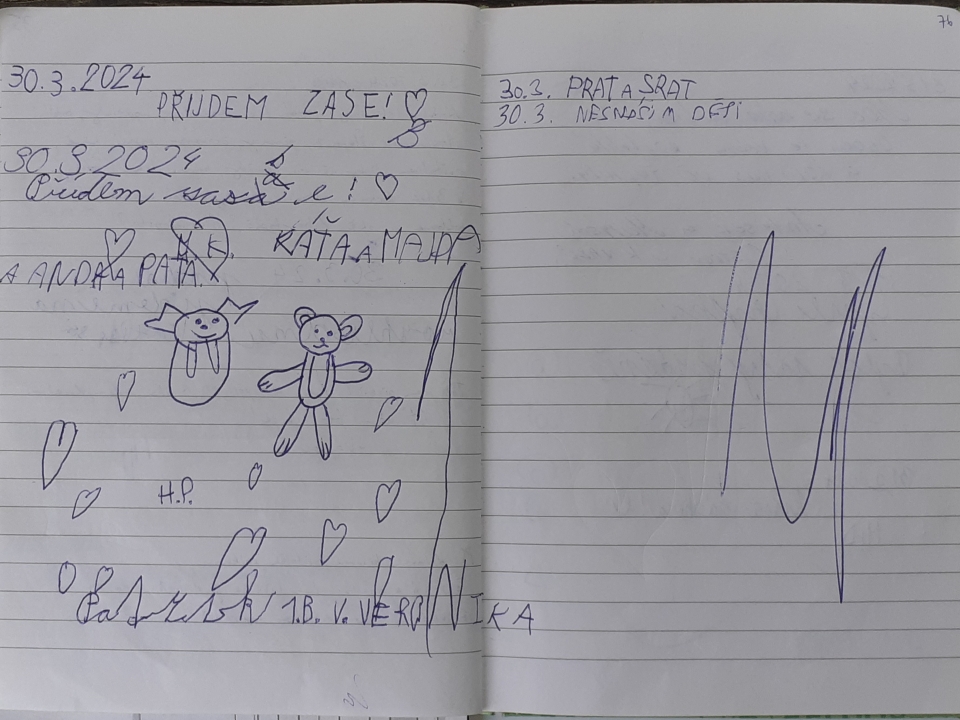 30.3.2024
PŘIJDEM ZASE! ♡
30.3.2024
Přídem zase! ♡
K.K. KÁŤA A MAJDA
A ANDA A PAŤA.
H.P.
Patrik 1.B. V. VERONIKA
76
30.3. PRAT A SRAT
30.3. NESNÁŠÍM DĚTI